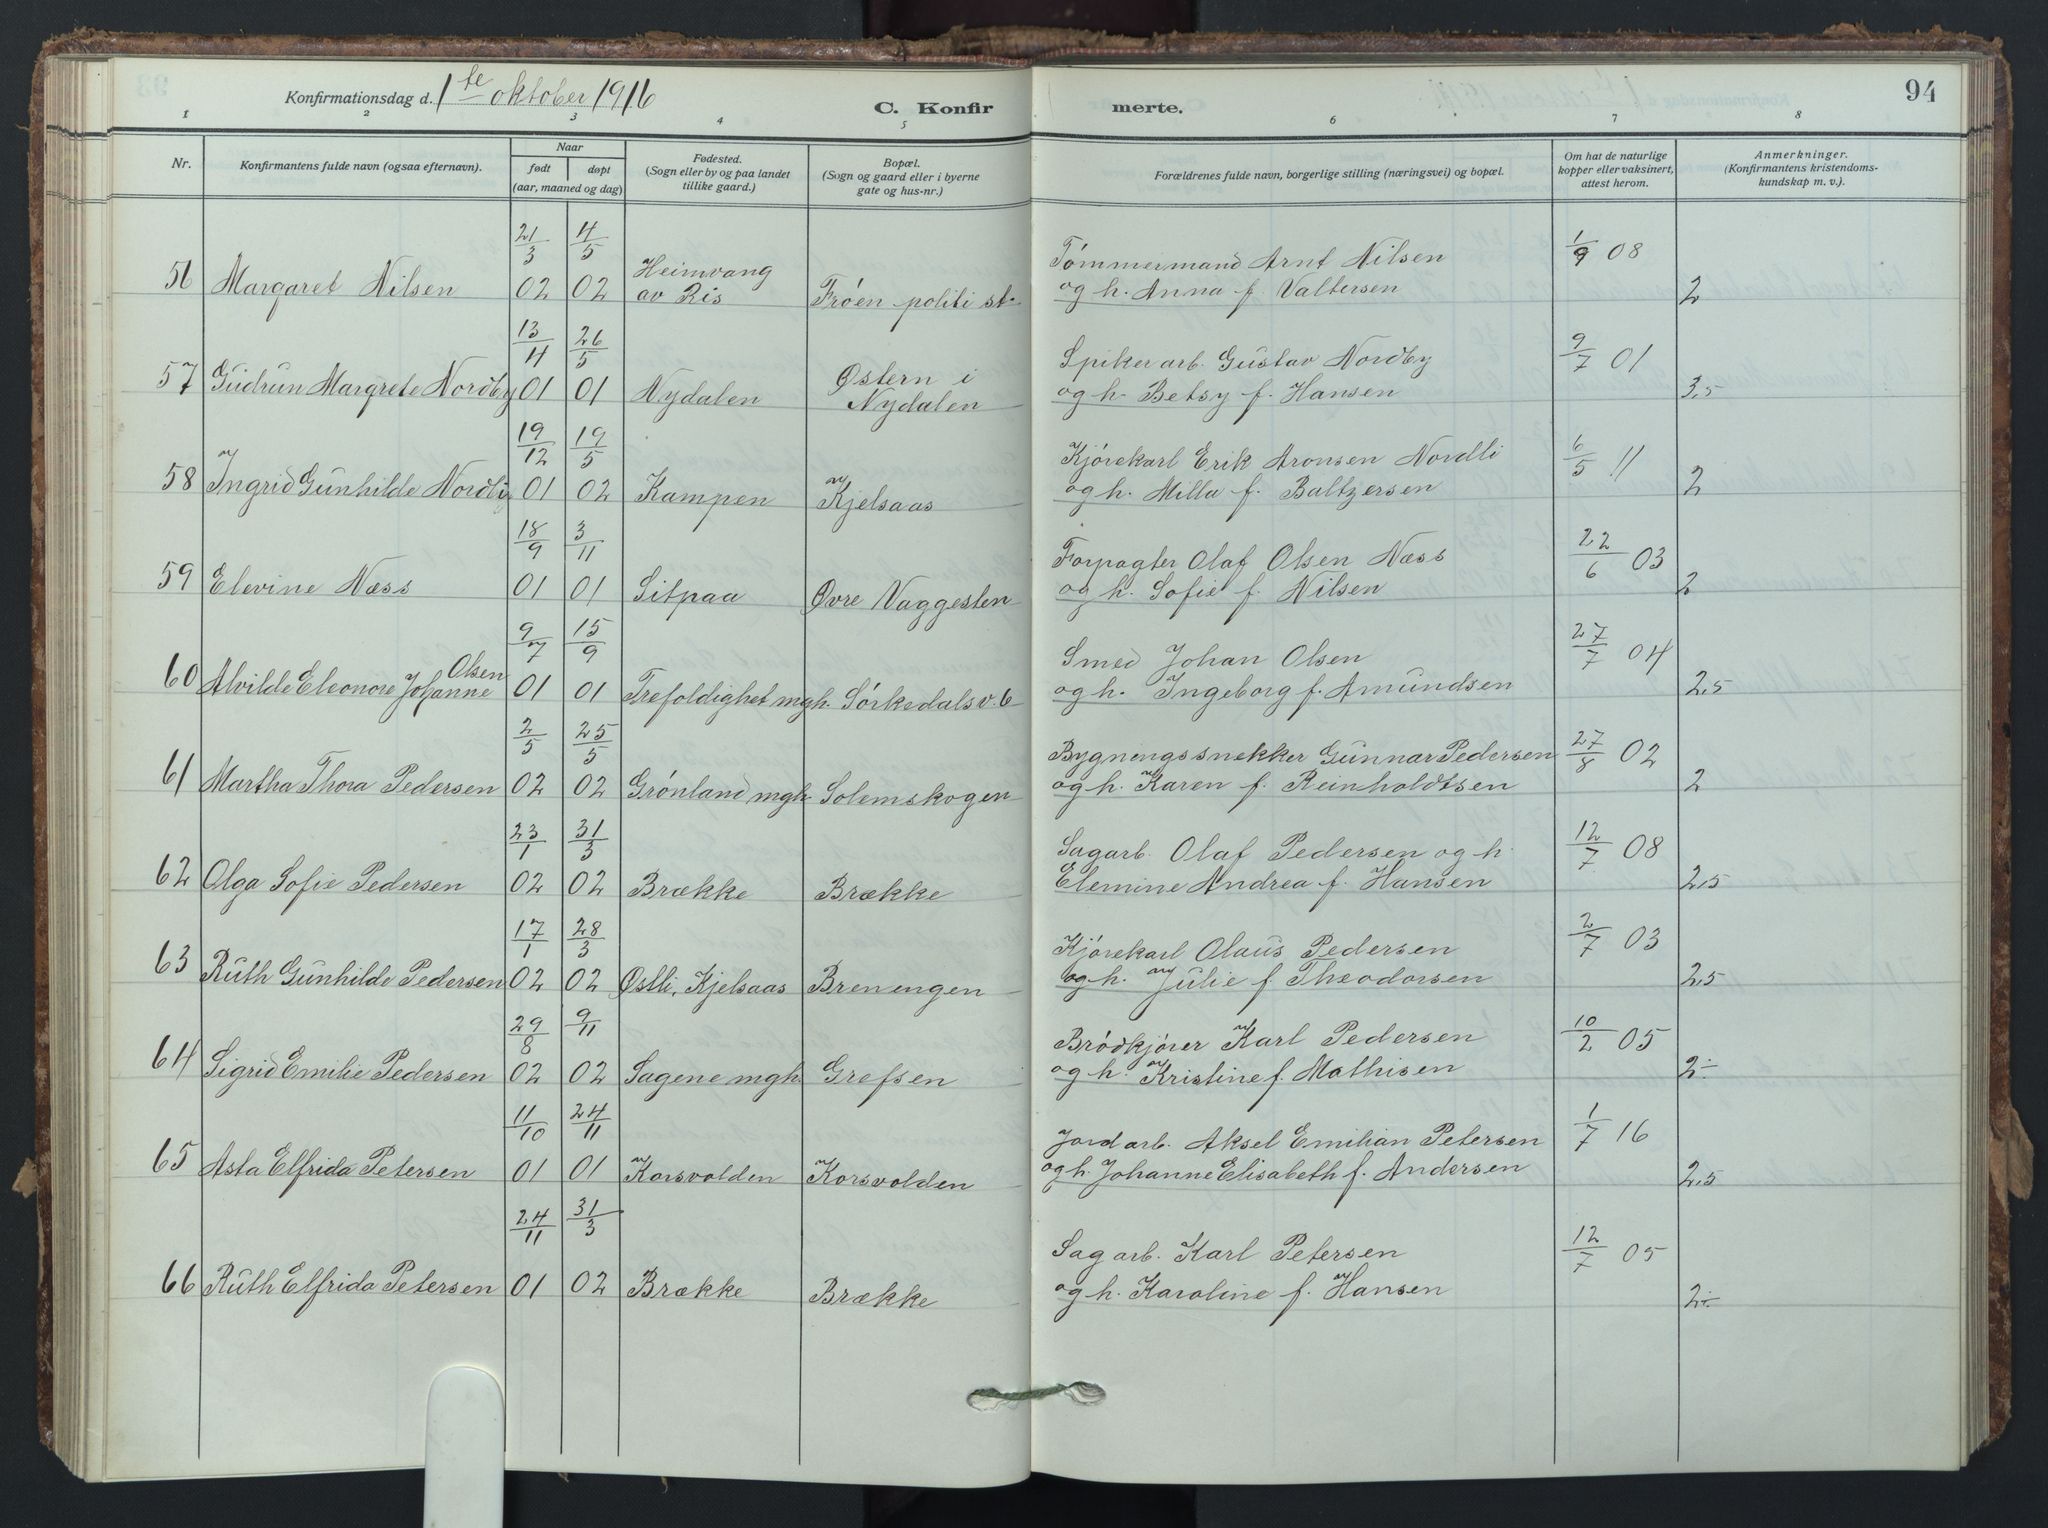 Konfirmationsdag d. 1ste oktober 1916
C. Konfirmerte.
94
1 2 3 4 5 6 7 8
Nr.
Konfirmantens fulde navn (ogsaa efternavn).
Naar
født døpt
(aar, maaned og dag)
Fødested.
(Sogn eller by og paa landet
tillike gaard.)
Bopæl.
(Sogn og gaard eller i byerne
gate og hus-nr.)
Forældrenes fulde navn, borgerlige stilling (næringsvei) og bopæl.
Om hat de naturlige
kopper eller vaksinert,
attest herom.
Anmerkninger.
(Konfirmantens kristendoms-
kundskap m. v.).
21/3 4/5 Heimvang Tømmermand Arnt Nilsen 1/9 08
56 Margaret Nilsen 02 02 av Ris Frøen politi st. og h. Anna f. Valtersen 2
13/4 26/5 Østern i Spikerarb. Gustav Nordby 9/7 01
57 Gudrun Margrete Nordby 01 01 Nydalen Nydalen og h. Betsy f. Hansen 3,5
19/12 19/5 Kjørekarl Erik Aronsen Nordli 6/5 11
58 Ingrid Gunhilde Nordli 01 02 Kampen Kjelsaas og h. Milla f. Baltzersen 2
18/9 3/11 Forpagter Olaf Olsen Næss 22/6 03
59 Elevine Næss 01 01 Sitpaa Øvre Vaggesten og h. Sofie f. Nilsen 2
Olsen 9/7 15/9 Smed Johan Olsen 27/7 04
60 Alvilde Eleonore Johanne 01 01 Trefoldighet mgh. Sørkedalsv. 6 og h. Ingeborg f. Amundsen 2,5
2/5 25/5 Bygningssnekker Gunnar Pedersen 27/8 02
61 Martha Thora Pedersen 02 02 Grønland mgh. Solemskogen og h. Karen f. Reinholdtsen 2
23/1 31/3 Sagarb. Olaf Pedersen og h. 12/7 08
62 Olga Sofie Pedersen 02 02 Brække Brække Elemine Andrea f. Hansen 2,5
17/1 28/3 Kjørekarl Olaus Pedersen 2/7 03
63 Ruth Gunhilde Pedersen 02 02 Østli, Kjelsaas Brenengen og h. Julie f. Theodorsen 2,5
29/8 9/11 Brødkjører Karl Pedersen 10/2 05
64 Sigrid Emilie Pedersen 02 02 Sagene mgh. Grefsen og h. Kristine f. Mathisen 2÷
11/10 24/11 Jordarb. Aksel Emilian Petersen 1/7 16
65 Asta Elfrida Petersen 01 01 Korsvolden Korsvolden og h. Johanne Elisabeth f. Andersen 2,5
24/11 31/3 Sagarb. Karl Petersen 12/7 05
66 Ruth Elfrida Petersen 01 02 Brække Brække og h. Karoline f. Hansen 2÷